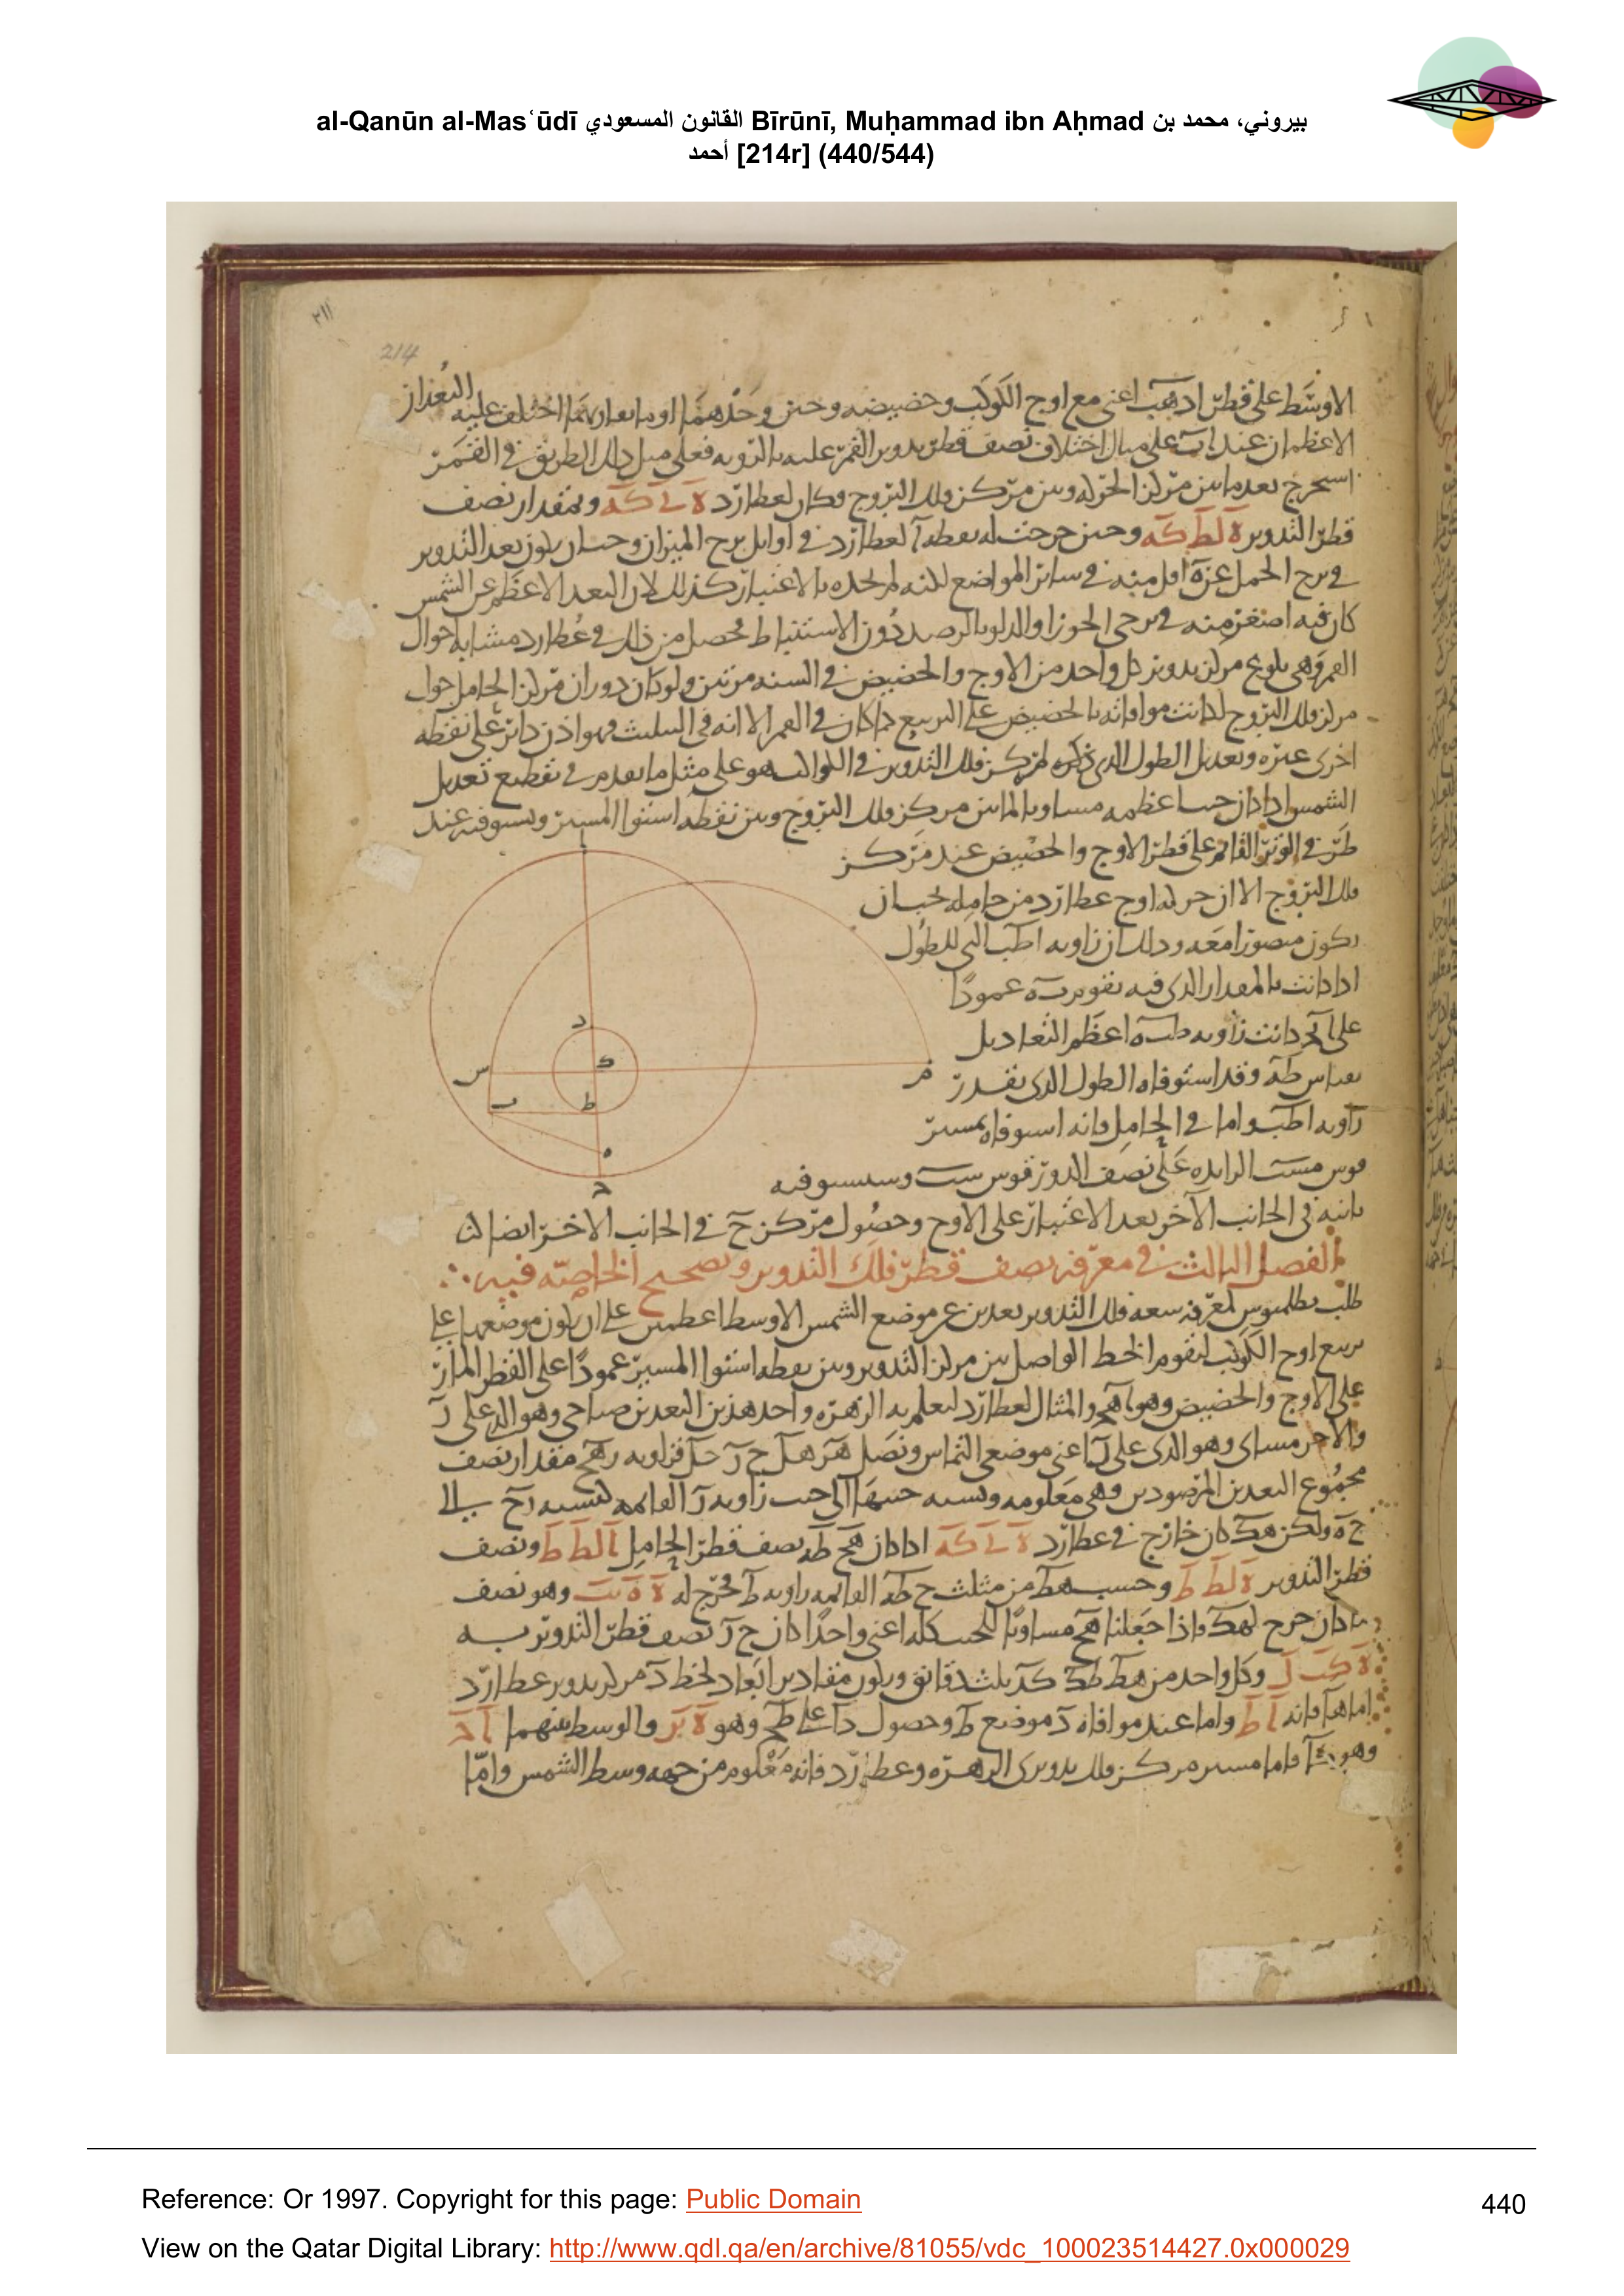 al-Qanūn al-Masʿūdī القانون المسعودي Bīrūnī, Muḥammad ibn Aḥmad بيروني، محمد بن
أحمد [214r] (440/544)
٢١١
214
الاوسط على قطر ادهب اعنى مع اوج الكوكب وحضيضه وحين وحدهما اختلف عليه البعدان
الاعظمان عند اب على مثال اختلاف نصف قطر تدوير القمر عليه بالرويه فعلى مثل ذلك الطريق فى القمر
استخرج بعد ما بين مركز الحركه وبين مركز فلك البروج وكان لعطارد وبمقدار نصف
قطر التدوير ه لط كه وحين خرجت له نقطه آ لعطارد فى اوايل برج الميزان وحسان يكون بعد التدوير
فى برج الحمل عنه اقل منه فى ساير المواضع لكنه لم يجده بالاعتبار كذلك لان البعد الاعظم عن الشمس
كان فيه اصغر منه فى برجى الجوزا والدلو بالرصد دون الاستنباط فحصل من ذلك فى عطارد مشابه احوال
القمر وهى بلوغ مركز تدويره كل واحد من الاوج والحضيض فى السنه مرتين ولو كان دوران مركز الحامل حول
مركز فلك البروج لكانت موافاته بالحضيض على التربيع كما كان فى القمر الا انه فى التثليث فهو اذن داير على نقطه
اخرى غيره وتعديل الطول الذى ذكره لمركز فلك التدوير فى الكواكب هو على مثل ما تقدم فى تقطيع تعديل
الشمس اذا كان جيب اعظمه مساويا لما بين مركز فلك البروج وبين نقطه استوا المسير ويستوفيه عند
طرفى الوتر القايم على قطر الاوج والحضيض عند مركز
فلك البروج الا ان حركه اوج عطارد من حامله يجب ان
يكون متصورا معه وذلك ان زاويه اطب التى للطول
اذا كانت بالمقدار الذى فيه يقوم به عمودا
على اج كانت زاويه طبه اعظم التعاديل
بقياس طه وقد استوفاه الطول الذى بقدر
زاويه اطب واما فى الحامل فانه استوفاه بمسير
قوس مست الزايده على نصف الدور بقوس ست وسيستوفيه
ثانيه فى الجانب الآخر بعد الاعتبار على الاوج وحصول مركز ح فى الجانب الاخر ايضا
ا
د
ك
س
م
ب
ط
ه
ح
الفصل الثالث فى معرفه نصف قطر فلك التدوير وتصحيح الخاصه فيه
طلب بطلميوس لمعرفه سعه فلك التدوير بعدين عن موضع الشمس الاوسط اعظمين على ان يكون موضعهما على
تربيع اوج الكوكب ليقوم الخط الواصل بين مركز التدوير وبين نقطه استوا المسير عمودا على القطر المار
على الاوج والحضيض وهو والمثال لعطارد ليعلم به الزهره واحد هذين البعدين صباحى وهو الذى على ر
والآخر مسائى وهو الذى على ل اعنى موضعى التماس ونصل هر هل ح ر حل فزاويه رهح مقدار نصف
مجموع البعدين المرصودين وهى معلومه ونسبه جيبها الى جيب زاويه ر القايمه كنسبه رح الى
ح ه ولكن هك كان خارج فى عطارد اذا كان هج طه نصف قطر الحامل ا لط ط ونصف
قطر التدوير ه لط ط وجيب هط من مثلث ح طه القايمه زاويه ط مخرج له وهو نصف
ما كان خرج لهك واذا جعلنا هج مساويا للجيب كله اعنى واحدا كان ح ر نصف قطر التدوير به
ه كب ل وكل واحد من هط طك كد ثلث دقايق ويكون مقادير ابعاد لخط د مركز تدوير عطارد
اما ها فانه ا ط واما عند موافاه د موضع ط وحصول دا على طح وهو والوسط بينهما
وهو فاما مسير مركز فلك تدويرى الزهره وعطارد فانه معلوم من جهه وسط الشمس وامّا
Reference: Or 1997. Copyright for this page: Public Domain
440
View on the Qatar Digital Library: http://www.qdl.qa/en/archive/81055/vdc_100023514427.0x000029